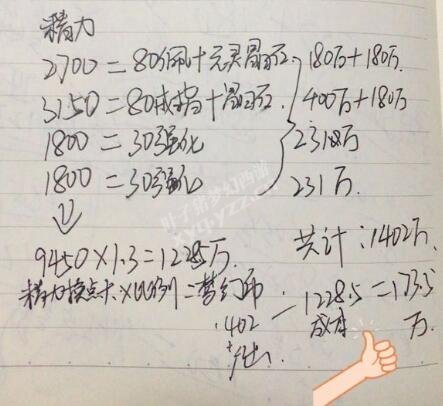 精力
2700=80佩+元灵晶石 180万+180万
3150=80戒指+晶石 400万+180万
1800=30强化 231万
1800=30强化 231万
9450×1.3=1228.5万
共计:1402万
精力换点卡×比例=梦幻币
1402-1228.5=173.5万
产出 成本
叶子猪梦幻西游
xyq.yzz.cn